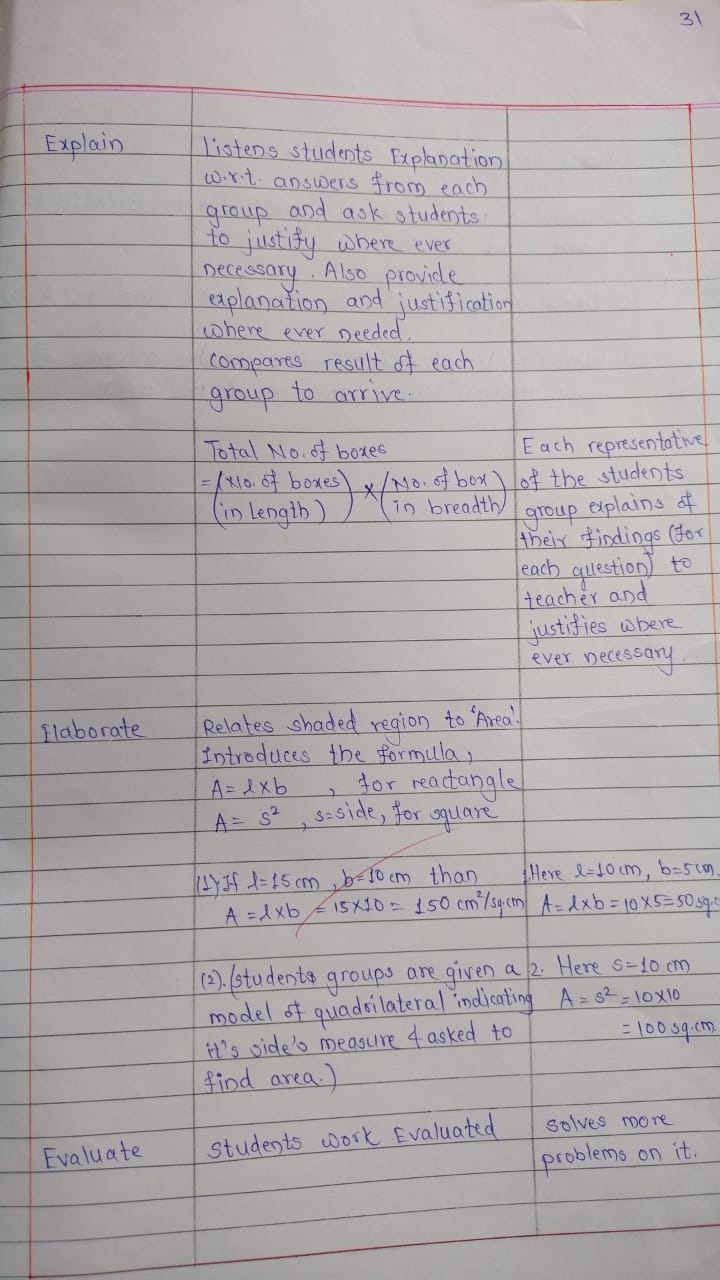 31
Explain
Listens students Explanation
w.r.t. answers from each
group and ask students
to justify where ever
necessary. Also provide
explanation and justification
where ever needed.
compares result of each
group to arrive.
Total No. of boxes
= (No. of boxes in Length) × (No. of box in breadth)
Each representative
of the students
group explains of
their findings (for
each question) to
teacher and
justifies where
ever necessary.
Elaborate
Relates shaded region to 'Area'.
Introduces the formula,
A = l×b , for reactangle
A = s² , s=side, for square
(1) If l=15 cm , b=10 cm than
A = l×b = 15×10 = 150 cm²/sq.cm
1. Here l=10 cm, b=5 cm.
A = l×b = 10×5=50 sq.c
(2). (students groups are given a
model of quadrilateral indicating
it's side's measure & asked to
find area.)
2. Here s=10 cm
A = s² = 10×10
= 100 sq.cm
Evaluate
Students work Evaluated
solves more
problems on it.